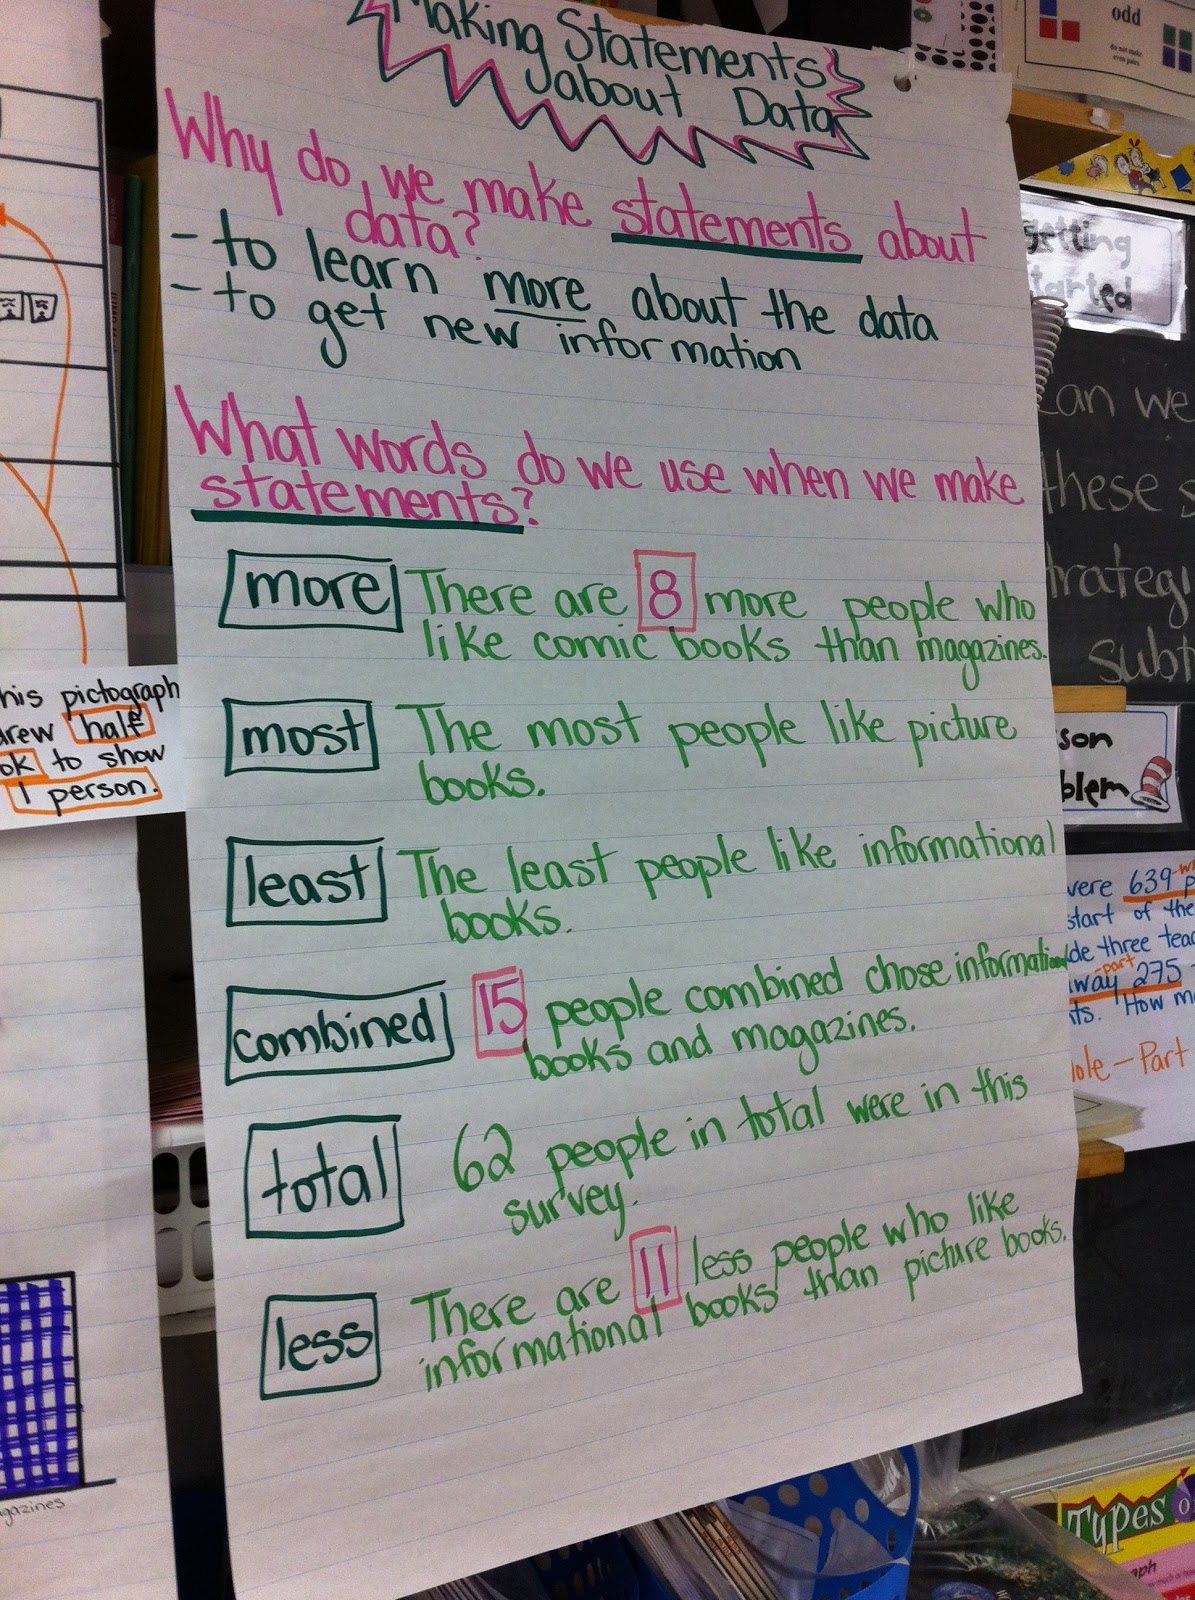 Making Statements
about Data
Why do we make statements about
data?
- to learn more about the data
- to get new information
What words do we use when we make
statements?
more There are 8 more people who
like comic books than magazines.
most The most people like picture
books.
least The least people like informational
books.
combined 15 people combined chose informational
books and magazines.
total 62 people in total were in this
survey.
less There are 11 less people who like
informational books than picture books.
pictograph
half
to show
1 person.
odd
do not make
even pairs
getting
started
can we
these
were 639
start of the
three
part
away 275
How
- Part
Types